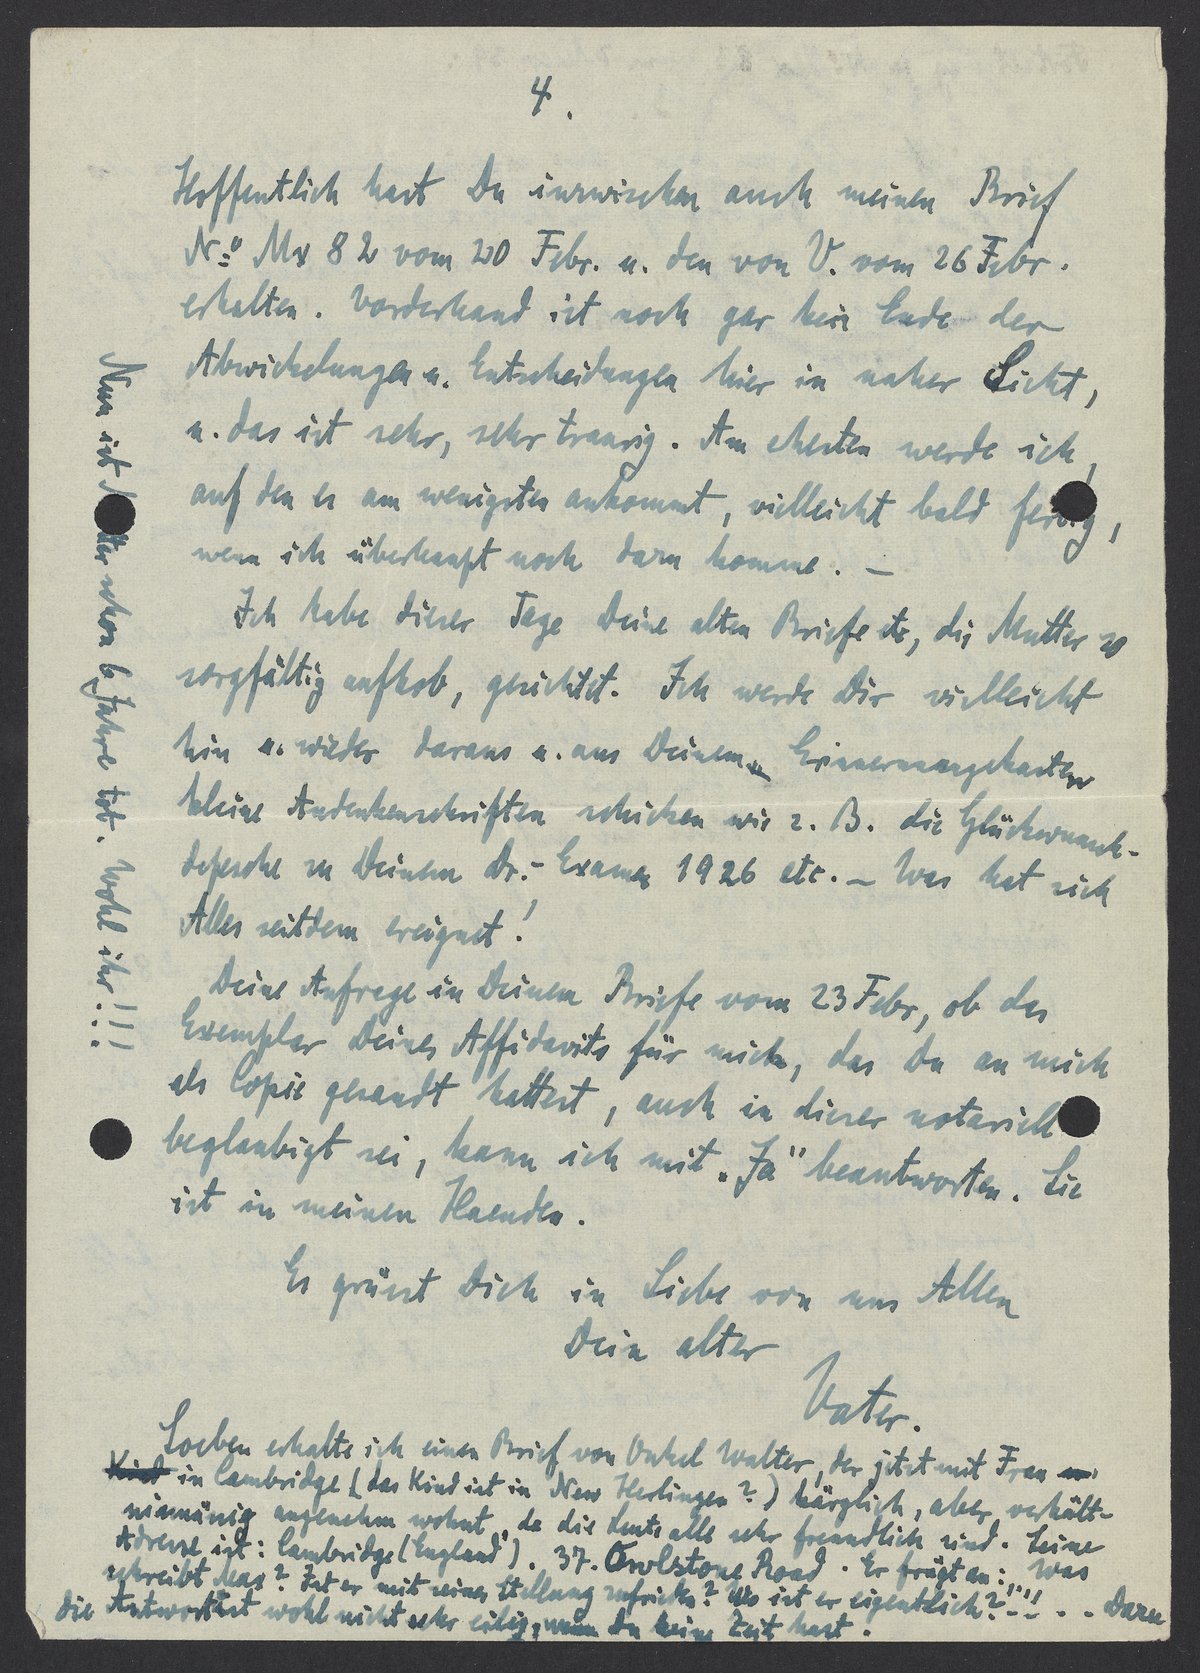 4.
Hoffentlich hast Du inzwischen auch meinen Brief
No Mx 82 vom 20 Febr. u. den von V. vom 26 Febr.
erhalten. Vorderhand ist noch gar kein Ende der
Abwickelungen u. Entscheidungen hier in naher Sicht,
u. das ist sehr, sehr traurig. Am ehesten werde ich,
auf den es am wenigsten ankommt, vielleicht bald fertig,
wenn ich überhaupt noch dazu komme. –
Ich habe dieser Tage Deine alten Briefe etc, die Mutter so
sorgfältig aufhob, gesichtet. Ich werde Dir vielleicht
hin u. wieder daraus u. aus Deinem „Erinnerungskasten“
kleine Andenkenschriften schicken wie z. B. die Glückwunsch-
depesche zu Deinem Dr.-Examen 1926 etc. – Was hat sich
Alles seitdem ereignet!
Deine Anfrage in Deinem Briefe vom 23 Febr, ob das
Exemplar Deines Affidavits für mich, das Du an mich
als Copie gesandt hattest, auch in dieser notariell
beglaubigt sei, kann ich mit „Ja“ beantworten. Sie
ist in meinen Haenden.
Es grüsst Dich in Liebe von uns Allen
Dein alter
Vater.
Soeben erhalte ich einen Brief von Onkel Walter, der jetzt mit Frau
Kind in Cambridge (das Kind ist in New Herlingen?) kärglich, aber verhält-
nismänig angenehm wohnt, da die Leute alle sehr freundlich sind. Seine
Adresse ist: Cambridge (England). 37. Owlstone Road. Er frägt an: „Was
schreibt Max? Ist er mit seiner Stellung zufrieden? Wo ist er eigentlich?“ – !! . . Dazu
die Antwort ist wohl nicht sehr eilig, wenn Du keine Zeit hast.
Nun ist Mutter schon 6 Jahre tot. Wohl ihr!!!